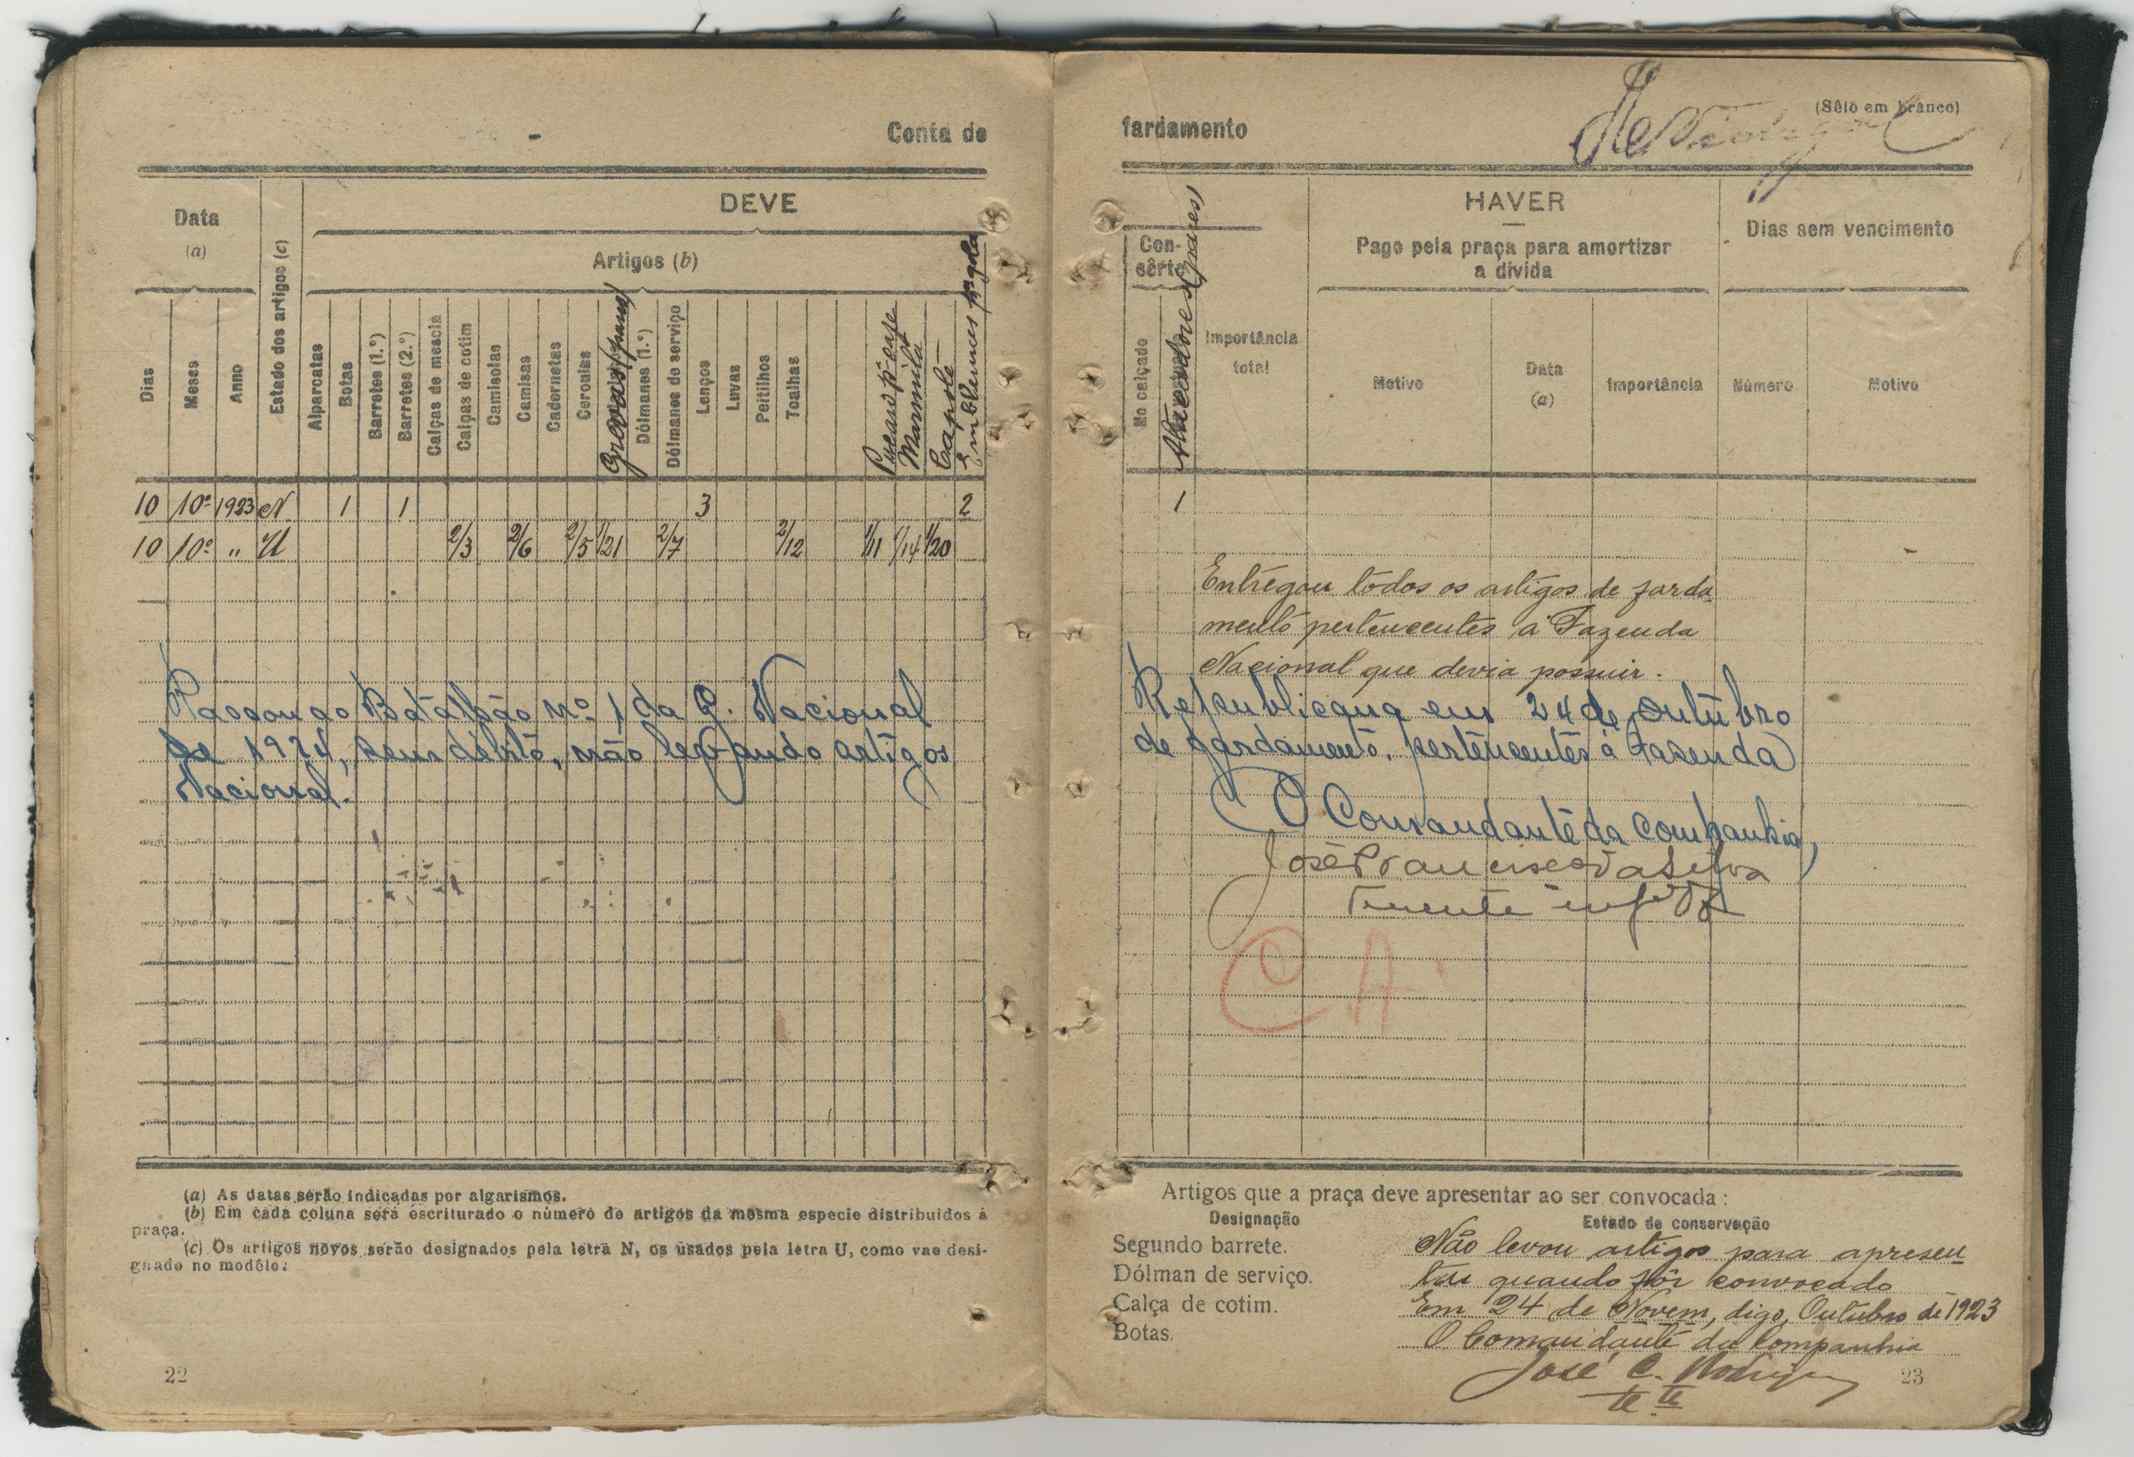 Conta de
DEVE
Data
(a)
Artigos (b)
Dias
Meses
Anno
Estado dos artigos (c)
Alparcatas
Botas
Barretes (1.º)
Barretes (2.º)
Calças de mescla
Calças de cotim
Camisolas
Camisas
Cadernetas
Ceroulas
Grevas (pares)
Dólmanes (1.º)
Dólmanes de serviço
Lenços
Luvas
Peitilhos
Toalhas
Marmita
Capote
Emblemas pª gola
10 10º 1923 N 1 1 3 2
10 10º " U 2/3 2/6 2/5 1/21 2/7 2/12 1/11 1/14 1/20
Passou ao Batalhão nº 1 da G. Nacional
de 1924, sem débito, não levando artigos
Nacional.
(a) As datas serão indicadas por algarismos.
(b) Em cada coluna será escriturado o número de artigos da mesma especie distribuidos á
praça.
(c) Os artigos novos serão designados pela letra N, os usados pela letra U, como vae desi-
gnado no modêlo:
22
fardamento
(Sêlo em branco)
HAVER
Con-
sêrto
Pago pela praça para amortizar
a divida
Dias sem vencimento
No calçado
Atacadores (pares)
Importância
total
Motivo
Data
(a)
Importância
Número
Motivo
1
Entregou todos os artigos de farda
mento pertencentes á Fazenda
Nacional que devia possuir.
Republicana em 24 de Outubro
de fardamento, pertencentes á Fazenda
O Comandante da Companhia,
José Francisco da Silva
Tenente
C A
Artigos que a praça deve apresentar ao ser convocada:
Designação
Estado de conservação
Segundo barrete.
Dólman de serviço.
Calça de cotim.
Botas.
Não levou artigos para apresen
tar quando fôr convocado
Em 24 de Novem, digo, Outubro de 1923
O Comandante da Companhia
José C. Rodrigues
te te
23